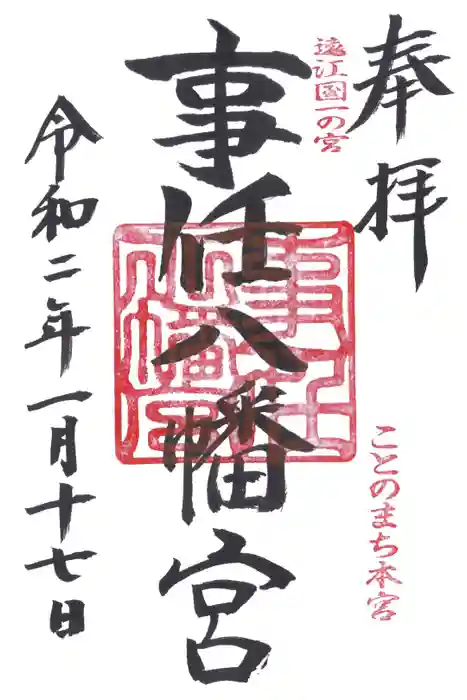 奉拝
遠江国一の宮
ことのまち本宮
事任八幡宮
令和二年一月十七日